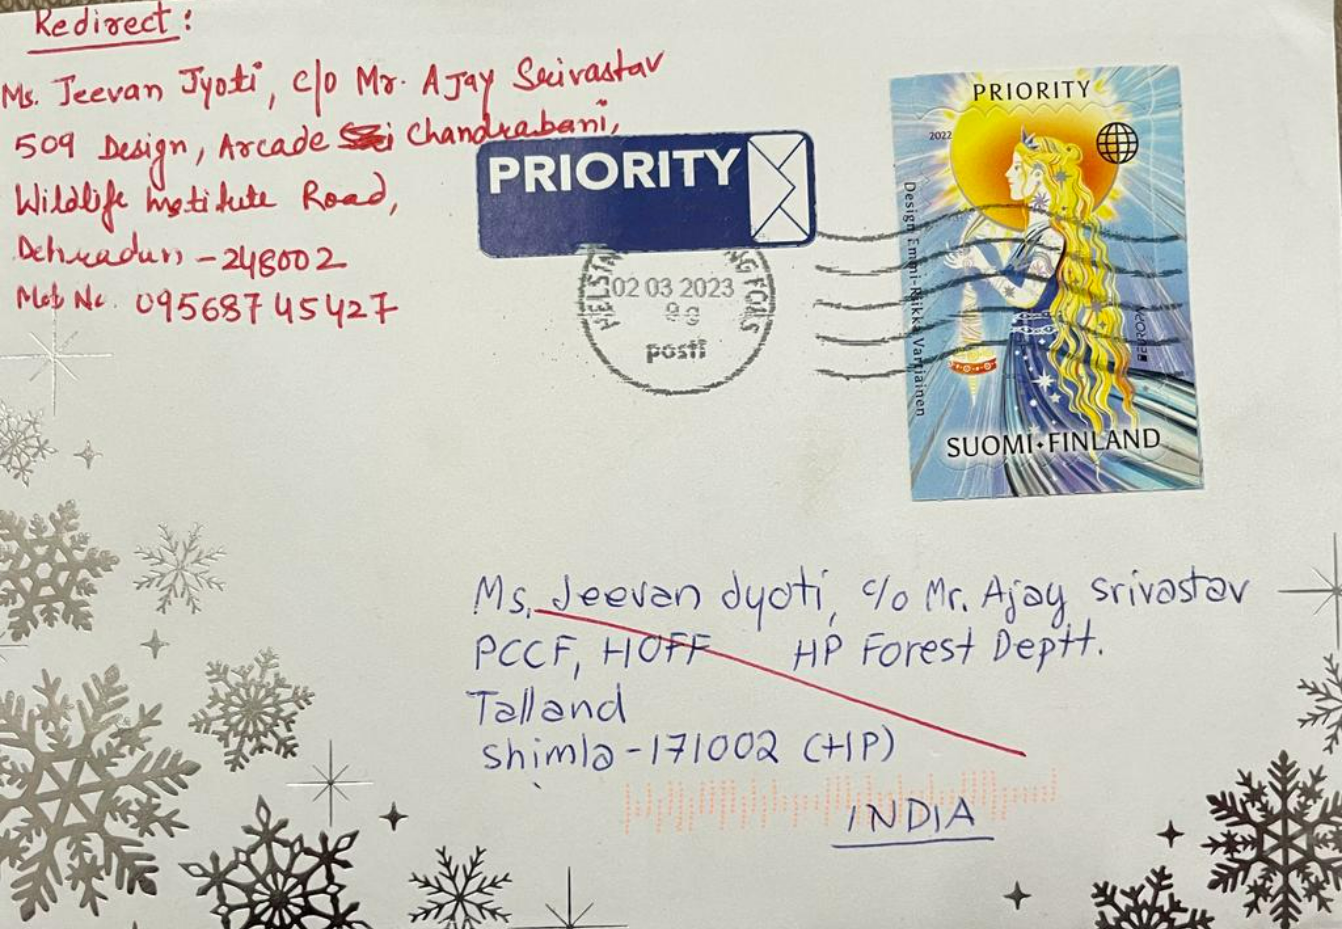 Redirect:
Ms. Jeevan Jyoti, c/o Mr. Ajay Srivastav
509 Design, Arcade Chandrabani,
Wildlife Institute Road,
Dehradun - 248002
Mob No. 09568745427
PRIORITY
02 03 2023
posti
PRIORITY
2022
Design Emmi-Riikka Vartiainen
EUROPA
SUOMI•FINLAND
Ms. Jeevan Jyoti, c/o Mr. Ajay Srivastav
PCCF, HOFF HP Forest Deptt.
Talland
Shimla-171002 (HP)
INDIA